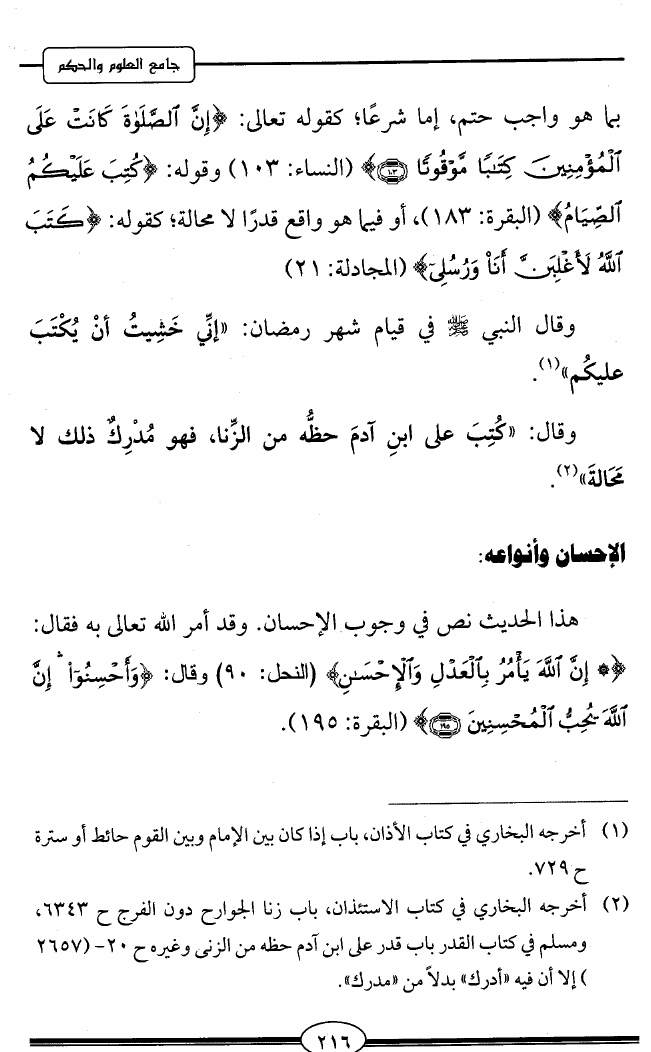 جامع العلوم والحكم
بما هو واجب حتم، إما شرعًا؛ كقوله تعالى: ﴿إِنَّ ٱلصَّلَوٰةَ كَانَتْ عَلَى
ٱلْمُؤْمِنِينَ كِتَٰبًا مَّوْقُوتًا ١٠٣﴾ (النساء: ١٠٣) وقوله: ﴿كُتِبَ عَلَيْكُمُ
ٱلصِّيَامُ﴾ (البقرة: ١٨٣)، أو فيما هو واقع قدرًا لا محالة؛ كقوله: ﴿كَتَبَ
ٱللَّهُ لَأَغْلِبَنَّ أَنَا۠ وَرُسُلِىٓ﴾ (المجادلة: ٢١)
وقال النبي ﷺ في قيام شهر رمضان: «إنِّي خَشِيتُ أنْ يُكْتَبَ
عليكُم»(١).
وقال: «كُتِبَ على ابنِ آدمَ حظُّه من الزِّنا، فهو مُدْرِكٌ ذلك لا
مَحَالةَ»(٢).
الإحسان وأنواعه:
هذا الحديث نص في وجوب الإحسان. وقد أمر الله تعالى به فقال:
﴿۞ إِنَّ ٱللَّهَ يَأْمُرُ بِٱلْعَدْلِ وَٱلْإِحْسَٰنِ﴾ (النحل: ٩٠) وقال: ﴿وَأَحْسِنُوٓا۟ ۛ إِنَّ
ٱللَّهَ يُحِبُّ ٱلْمُحْسِنِينَ ١٩٥﴾ (البقرة: ١٩٥).
(١) أخرجه البخاري في كتاب الأذان، باب إذا كان بين الإمام وبين القوم حائط أو سترة
ح ٧٢٩.
(٢) أخرجه البخاري في كتاب الاستئذان، باب زنا الجوارح دون الفرج ح ٦٣٤٣،
ومسلم في كتاب القدر باب قدر على ابن آدم حظه من الزنى وغيره ح ٢٠- (٢٦٥٧
) إلا أن فيه «أدرك» بدلاً من «مدرك».
٢١٦